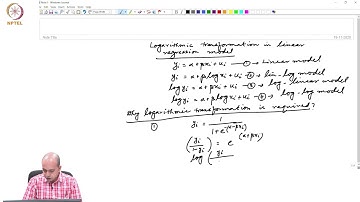 NPTEL
Note Title
Logarithmic transformation in linear
regression model
yi = α+βxi+ui —① → Linear model
yi = α+βlogxi+ui —② → lin-log model
logyi = α+βxi+ui —③ → log-linear model
logyi = α+βlogxi+ui —④ → log-log model
Why logarithmic transformation is required?
① yi = 1/(1+e^-(α+βxi))
(yi/(1-yi)) = e^(α+βxi)
log (yi